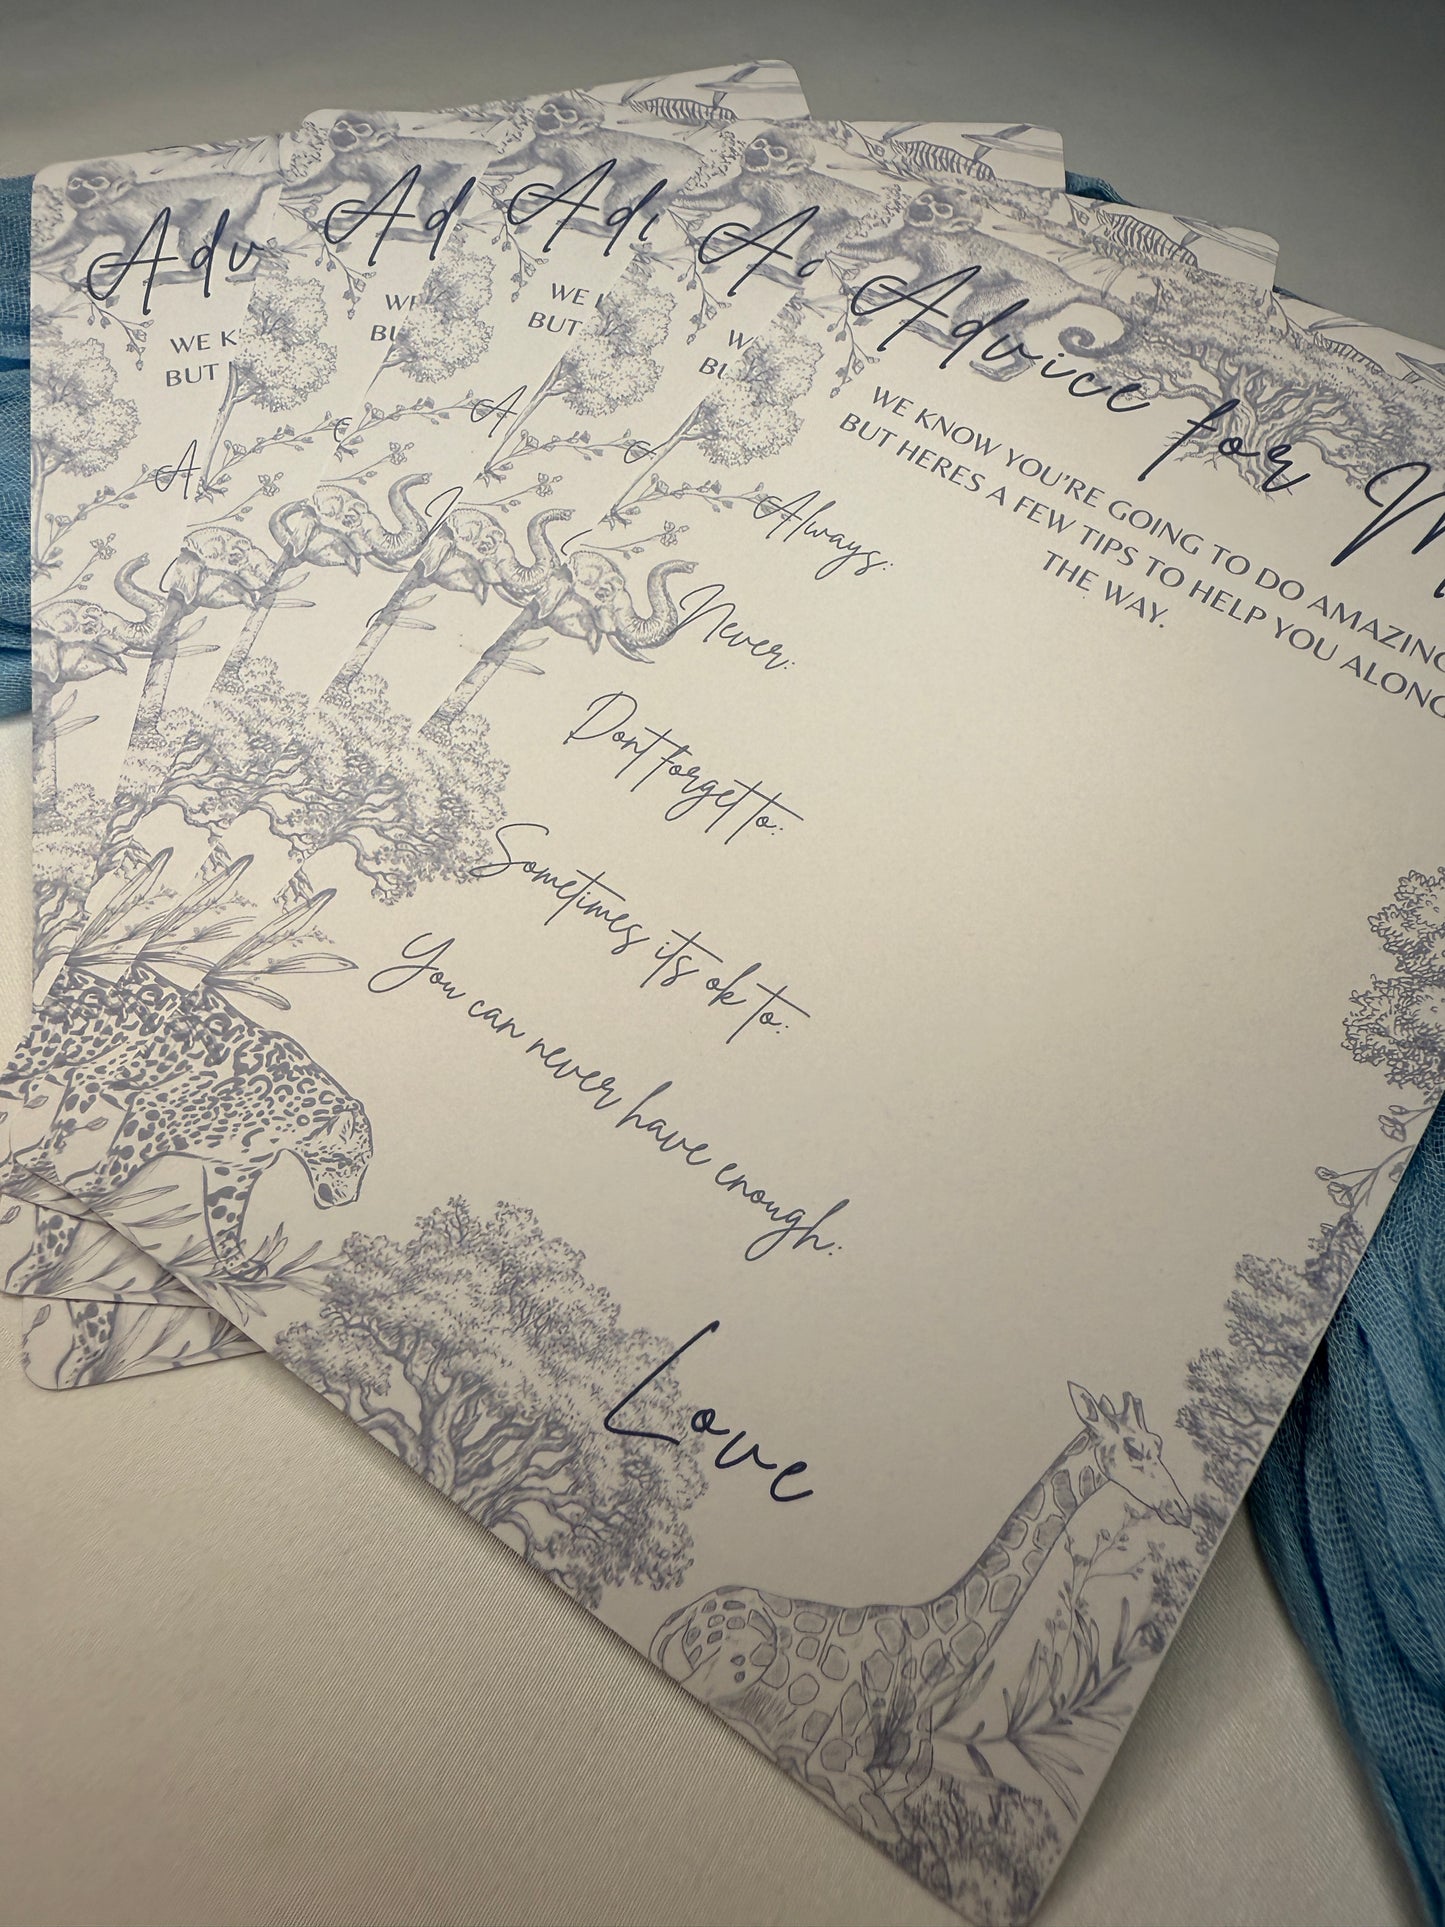 Adv
WE K
BUT
A
Ad
WE
BU
Adi
WE
BUT
A
A
W
BU
Advice for M
WE KNOW YOU'RE GOING TO DO AMAZING
BUT HERES A FEW TIPS TO HELP YOU ALONG
THE WAY.
Always:
Never:
Dont forget to:
Sometimes its ok to:
You can never have enough:
Love